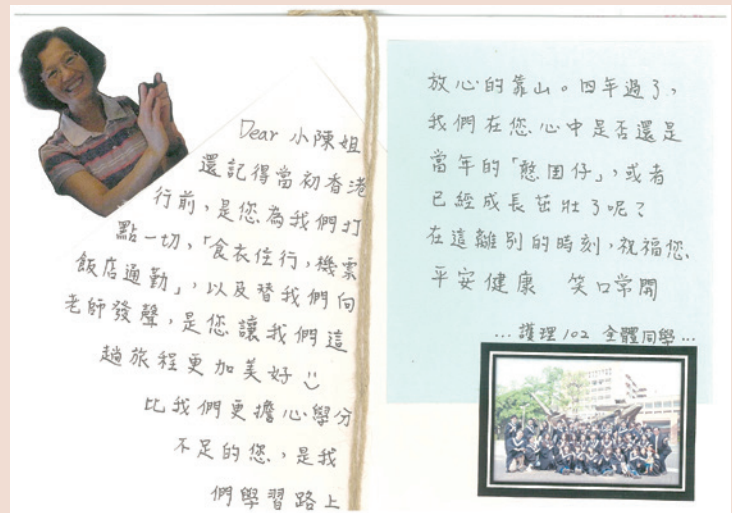 Dear 小陳姐
還記得當初香港
行前，是您為我們打
點一切，「食衣住行，機票
飯店通勤」，以及替我們向
老師發聲，是您讓我們這
趟旅程更加美好
比我們更擔心學分
不足的您，是我
們學習路上
放心的靠山。四年過了，
我們在您心中是否還是
當年的「憨囝仔」，或者
已經成長茁壯了呢？
在這離別的時刻，祝福您
平安健康 笑口常開
…護理102 全體同學…